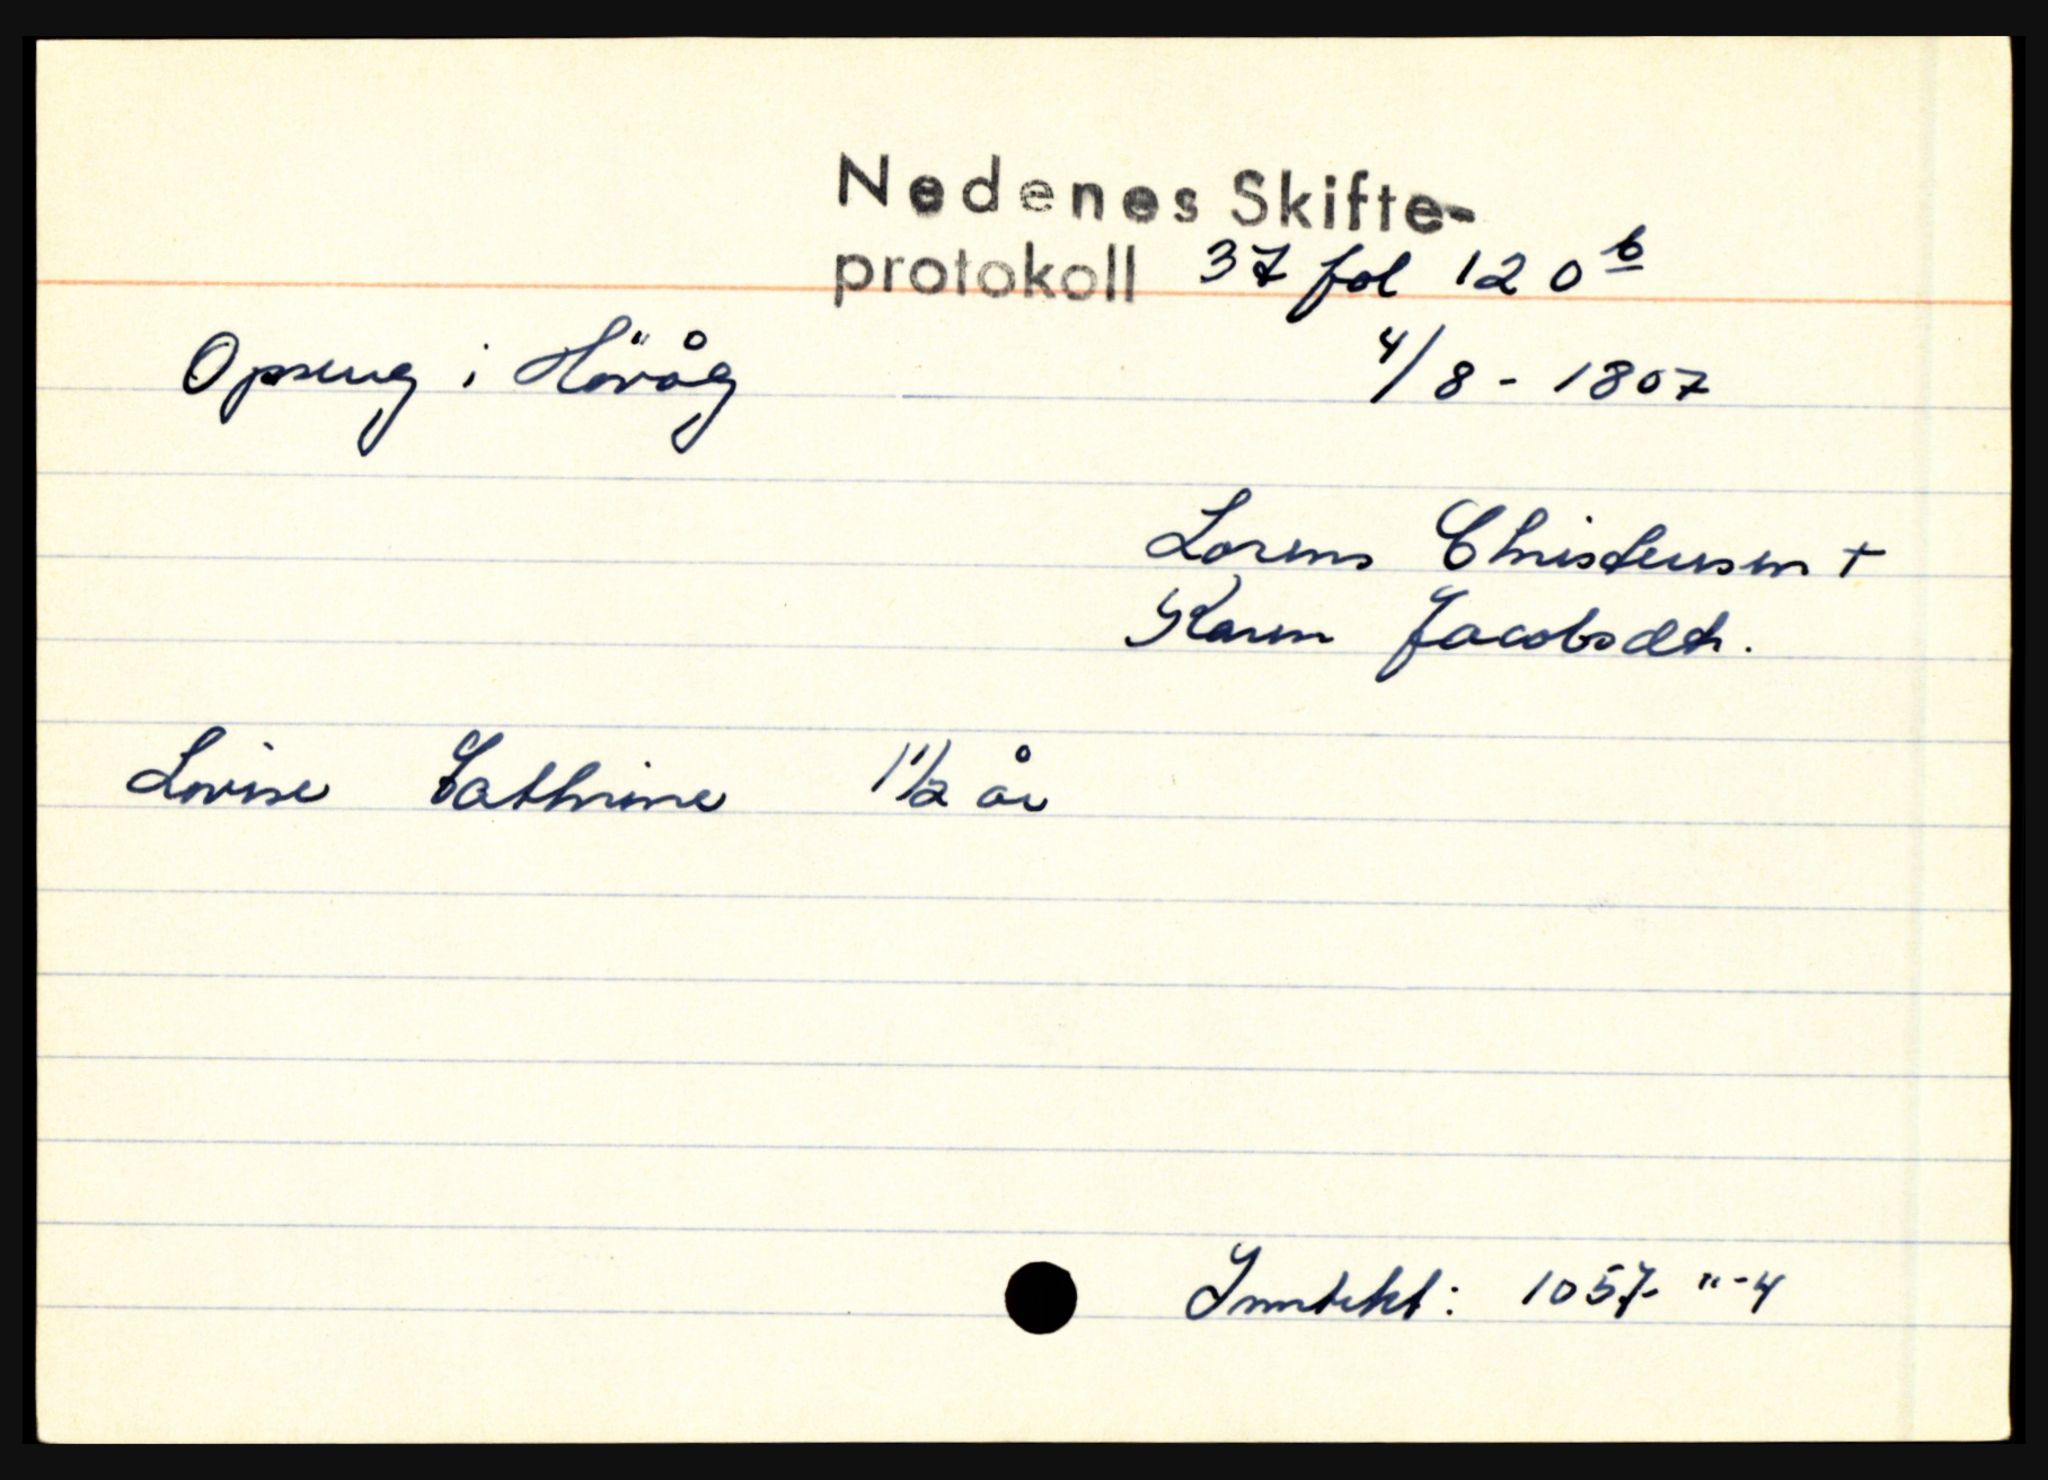 Nedenes Skifte-
protokoll 37 fol 120b
Opseug i Høvåg
4/8 - 1807
Lorens Christensen +
Karen Jacobsdtr.
Lovise Cathrine 1 1/2 år
Inntekt: 1057 - " - 4